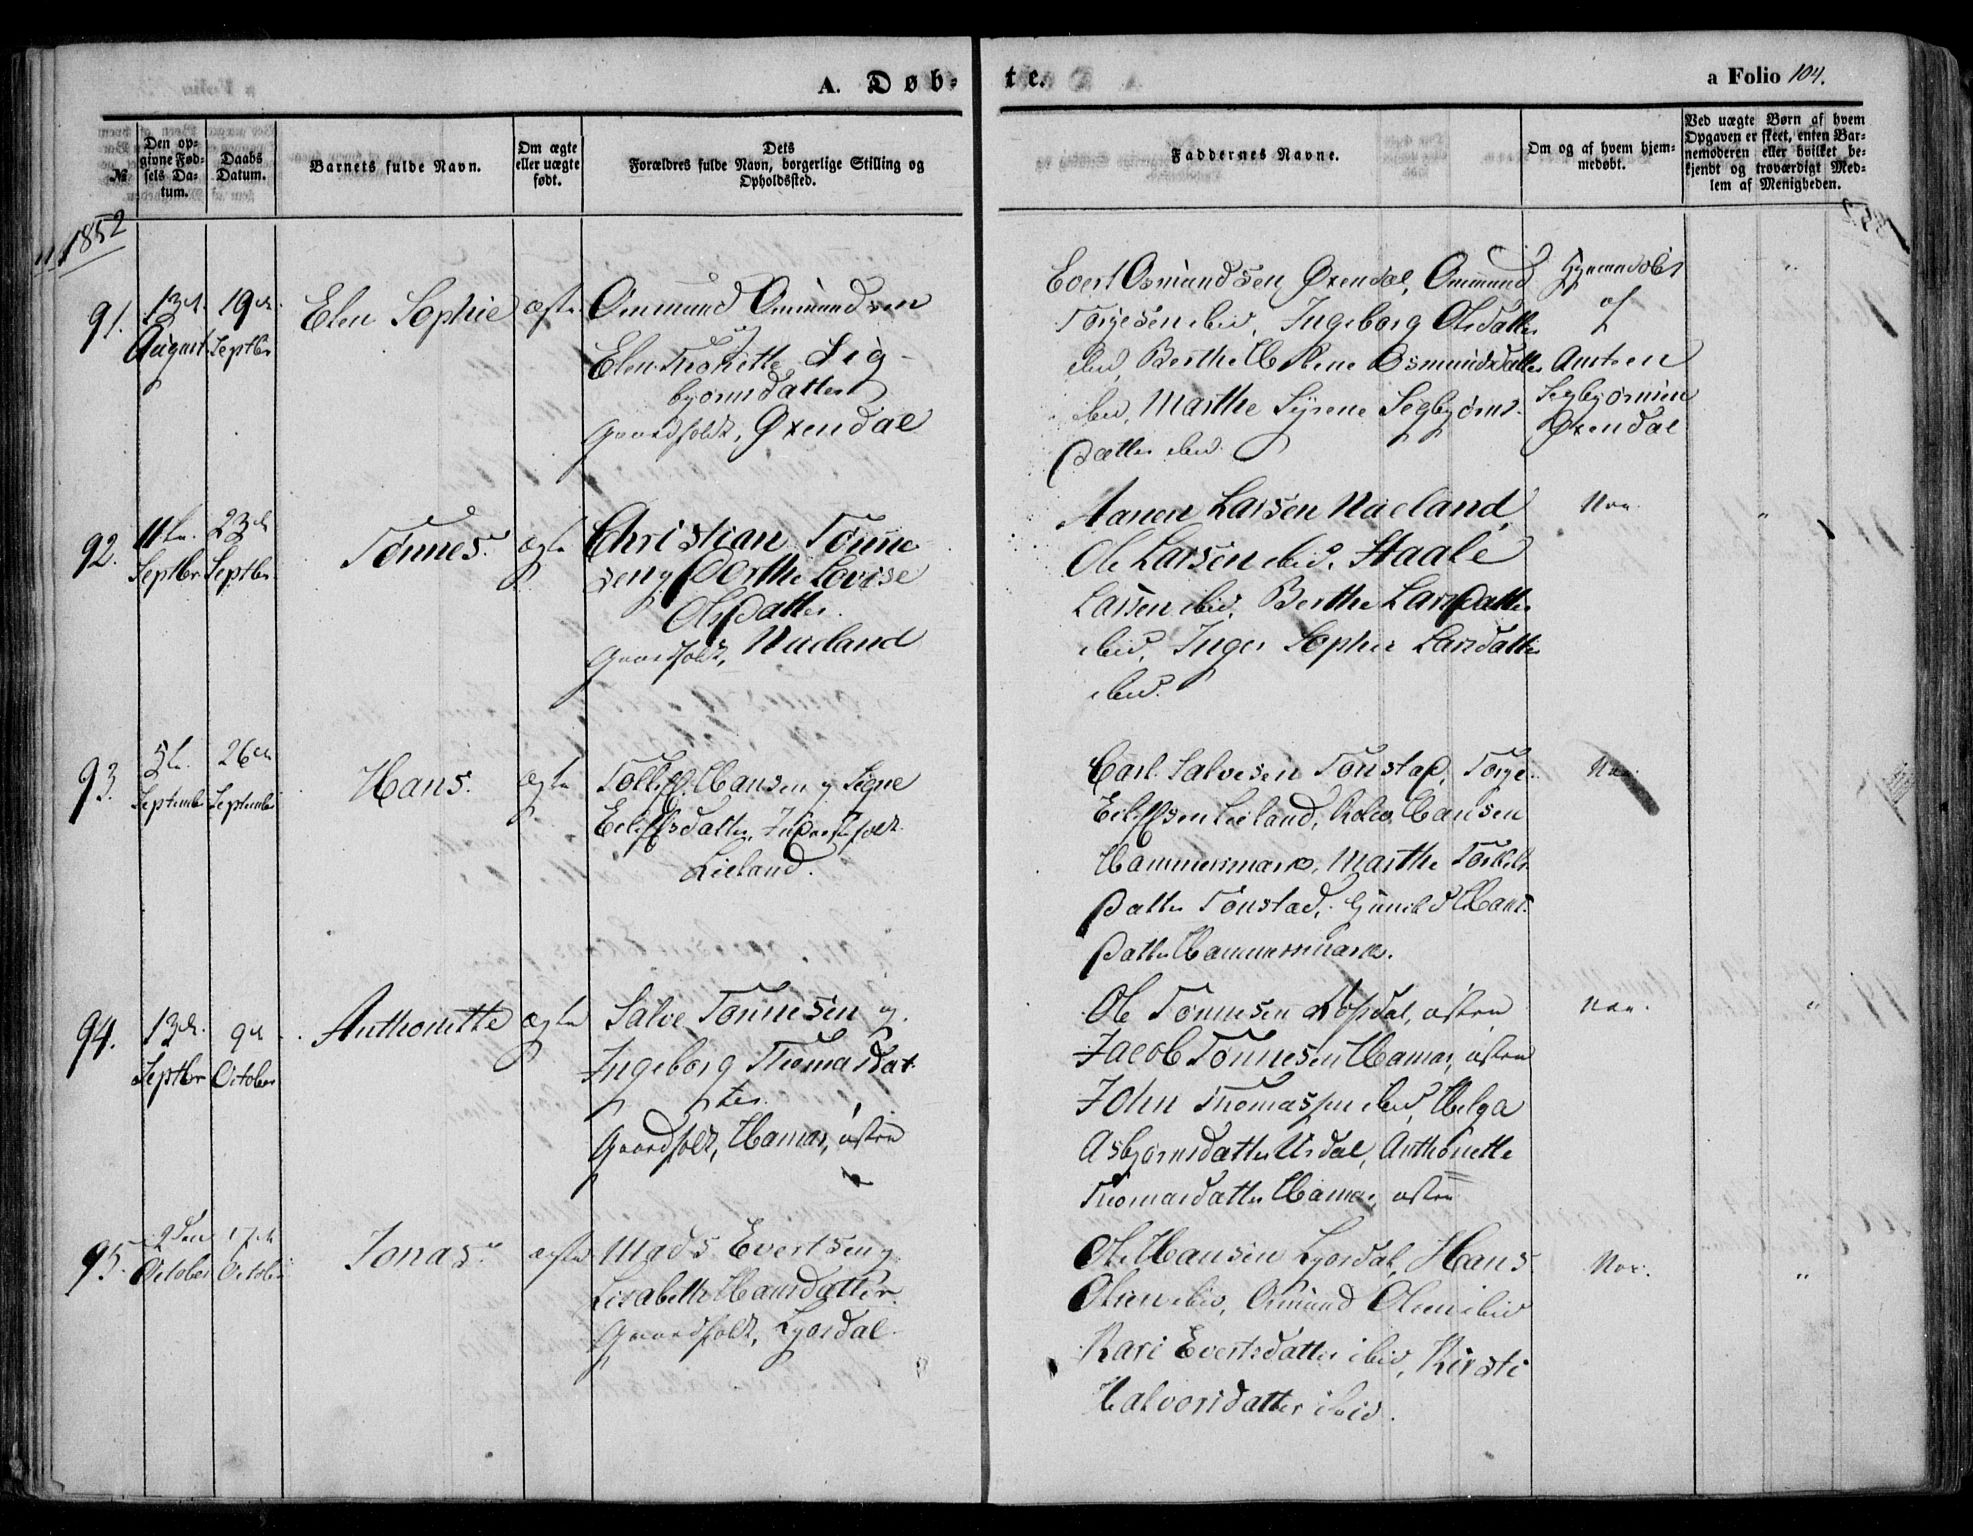 A. Døb-
te.
a Folio 104.
№
Den op-
givne Fød-
sels Da-
tum.
Daabs
Datum.
Barnets fulde Navn.
Om ægte
eller uægte
født.
Dets
Forældres fulde Navn, borgerlige Stilling og
Opholdssted.
Faddernes Navne.
Om og af hvem hjem-
medøbt.
Ved uægte Børn af hvem
Opgaven er skeet, enten Bar-
nemoderen eller hvilket be-
kjendt og troværdigt Med-
lem af Menigheden.
1852
91.
13de
August
19de
Septbr
Elen Sophie
ægte
Ommund Ommundsen
og
Elen Sig-
bjørnsdatter
Gaardfolk, Øxendal
Evert Osmundsen Øxendal, Ommund
Torgesen ibid, Ingeborg Olsdatter
ibid, Berthe Helene Osmundsdatter
ibid, Marthe Syrene Segbjørns-
datter ibid.
Hjemmedøbt
af
Austen
Segbjørnsen
Øxendal
"
92.
11te
Septbr
23de
Septbr
Tønnes.
ægte
Christian Tønne
sen og Dorthe Lovise
Olsdatter.
Gaardfolk, Naeland
Aanen Larsen Naeland,
Ole Larsen ibid, Staale
Larsen ibid, Berthe Larsdatter
ibid, Inger Sophie Larsdatter
ibid.
Nei.
"
93.
5te
September
26de
September
Hans.
ægte
Tollef Hansen og Signe
Eilifsdatter, Inderstfolk
Lieland.
Carl Salvesen Tonstad, Torge
Eilifsen Lieland, Hansen
Hammersmark, Marthe Torkels
datter Tonstad, Gunild Hans
datter Hammersmark.
Nei.
94.
13de
Septbr
9de
October
Anthonette
ægte
Salve Tønnesen og
Ingeborg Thomasdat
ter.
Gaardfolk, Hamar, østre
Ole Tønnesen Opdal, østre
Jacob Tønnesen Hamar, østre
John Thomassen ibid, Helga
Asbjørnsdatter Urdal, Anthonette
Thomasdatter Hamar, østre
Nei.
"
95.
2den
October
17de
October
Jonas.
ægte
Mads Evertsen og
Lisabeth Hansdatter.
Gaardfolk, Ljosdal.
Ole Hansen Ljosdal, Hans
Olsen ibid, Osmund Olsen ibid
Kari Evertsdatter ibid, Kirsti
Halvorsdatter ibid.
Nei.
"